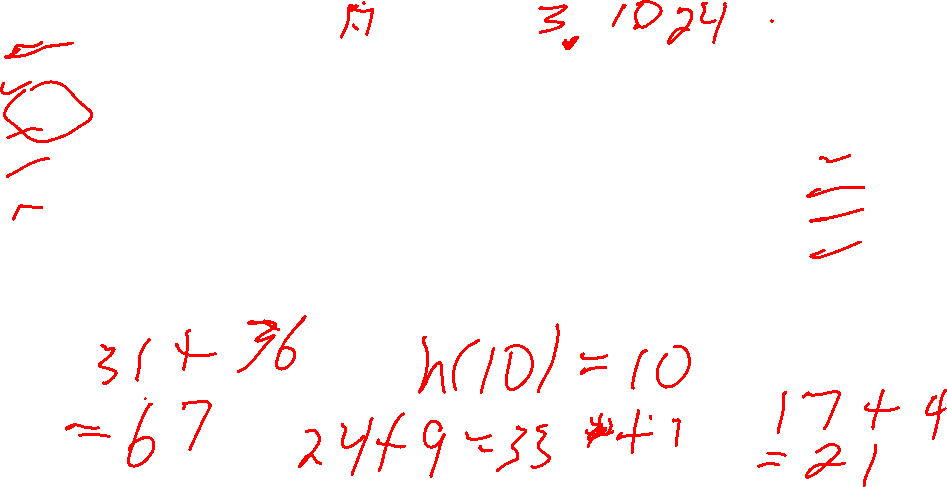 3. 1024
31 + 36
= 67
h(10) = 10
24+9=33
17+4
=21